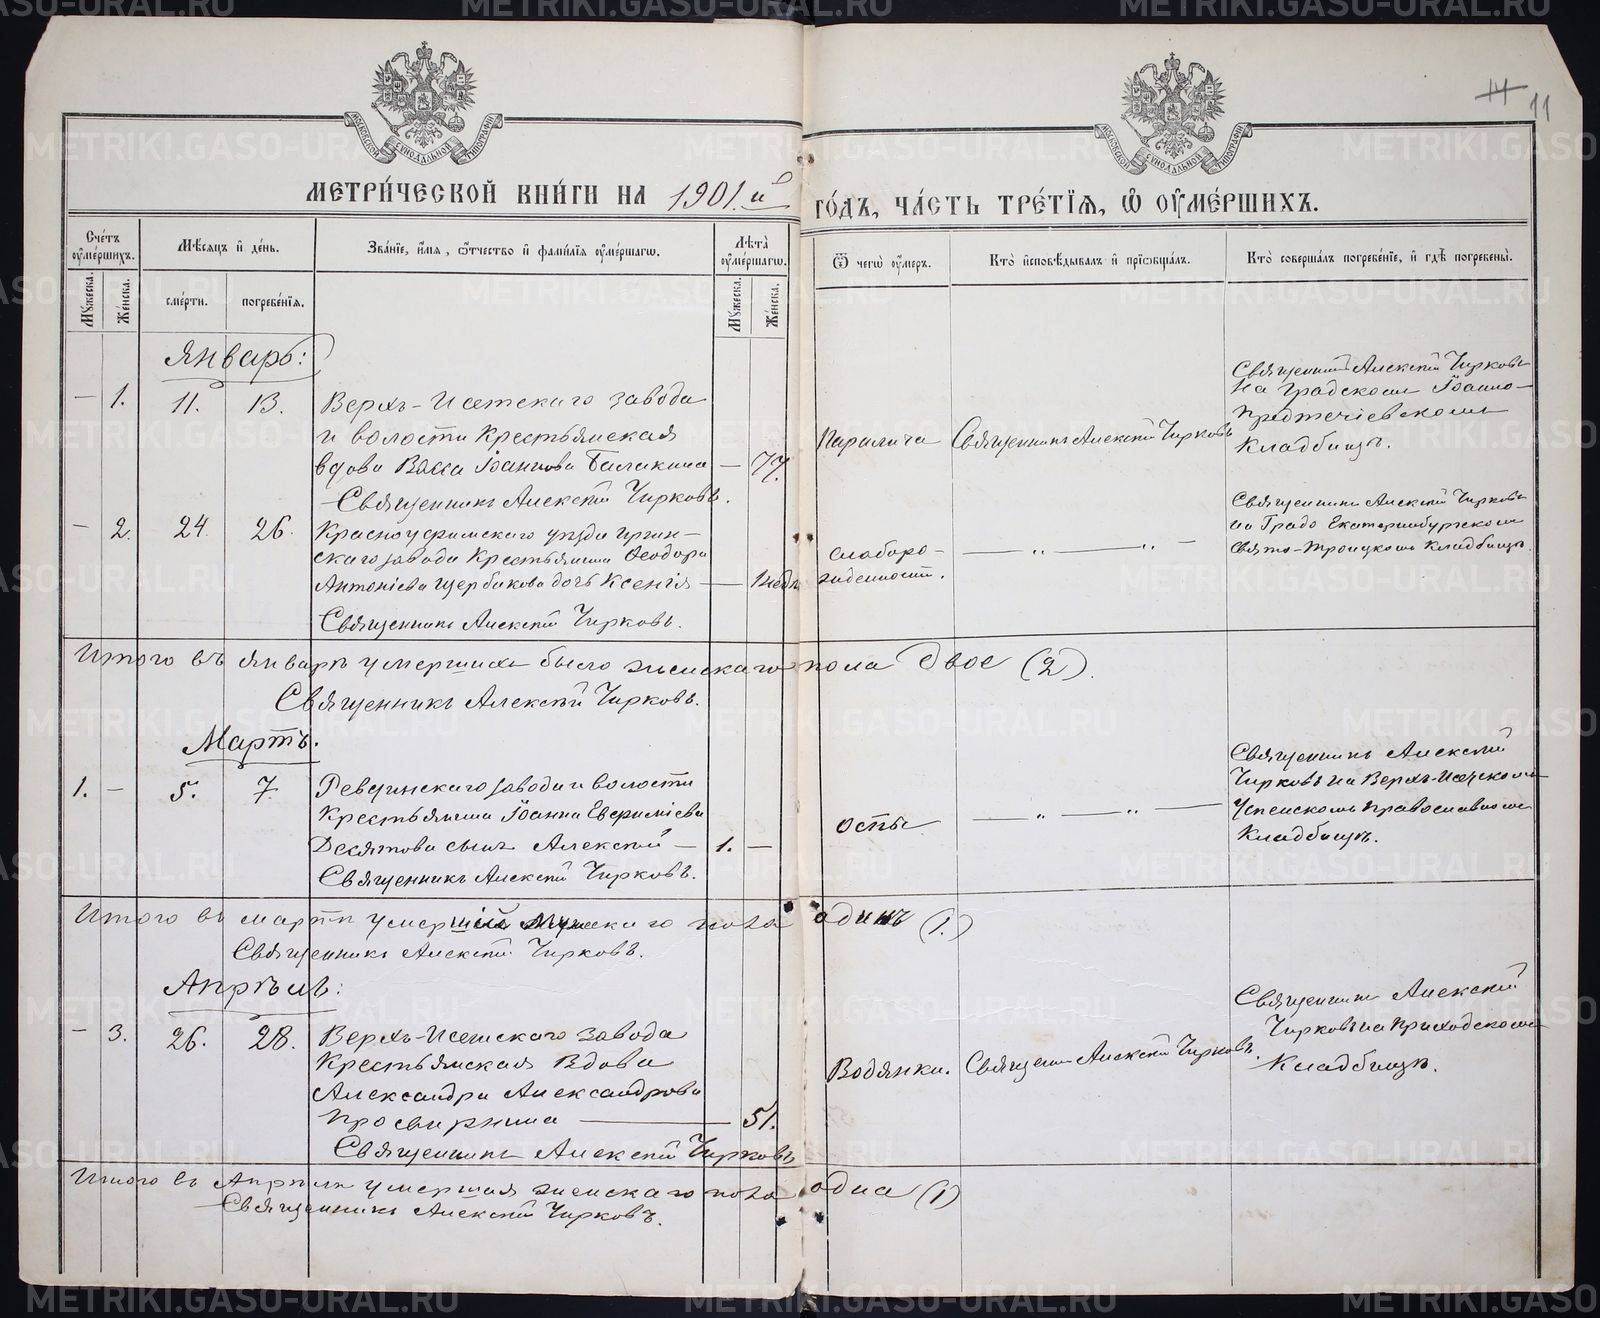 11
МОСКОВСКОЙ СУНОДАЛЬНОЙ ТИПОГРАФІИ
МОСКОВСКОЙ СУНОДАЛЬНОЙ ТИПОГРАФІИ
МЕТРИ́ЧЕСКОЙ КНИ́ГИ НА 1901.й ГО́ДЪ, ЧА́СТЬ ТРЕ́ТІѦ, Ѡ҆ ОУ҆МЕ́РШИХЪ.
Сче́тъ оу҆ме́ршихъ.
Мѣ́сѧцъ и҆ де́нь.
Зва́ніе, и҆́мѧ, ѻ҆́тчество и҆ фами́лїѧ оу҆ме́ршагѡ.
Лѣ́та оу҆ме́ршагѡ.
Ѿ чегѡ̀ оу҆́меръ.
Кто̀ и҆сповѣ́дывалъ и҆ прїѡбща́лъ.
Кто̀ соверша́лъ погребе́ніе, и҆ гдѣ̀ погребены̀.
Мꙋ́жеска.
Же́нска.
сме́рти.
погребе́нїѧ.
Мꙋ́жеска.
Же́нска.
Январь:
– 1. 11. 13. Верхъ-Исетскаго завода
и волости Крестьянская
вдова Васса Іоаннова Балакина – 77.
Священникъ Алексій Чирковъ.
Паралича
Священникъ Алексій Чирковъ
Священникъ Алексій Чирковъ
на Градскомъ Іоанно-
Предтечіевскомъ
Кладбищѣ.
– 2. 24. 26. Красноуфимскаго уѣзда Иргин-
скаго завода Крестьянина Ѳеодора
Антоніева Щербакова дочь Ксенія – 1 недѣл.
Священникъ Алексій Чирковъ.
слаборо-
жденности.
– „ – „ –
Священникъ Алексій Чирковъ
на Градо Екатеринбургскомъ
Свято-Троицкомъ Кладбищѣ.
Итого въ январѣ умершихъ было женскаго пола двое (2).
Священникъ Алексій Чирковъ.
Мартъ.
1. – 5. 7. Ревдинскаго завода и волости
Крестьянина Іоанна Евфиміева
Десятова сынъ Алексій – 1. –
Священникъ Алексій Чирковъ.
Оспы
– „ – „ –
Священникъ Алексій
Чирковъ на Верхъ-Исетскомъ
Успенскомъ православномъ
Кладбищѣ.
Итого въ мартѣ умершій мужескаго пола одинъ (1.)
Священникъ Алексій Чирковъ.
Апрѣль:
– 3. 26. 28. Верхъ-Исетскаго завода
Крестьянская Вдова
Александра Александрова
Просвирнина – 51.
Священникъ Алексій Чирковъ
Водянки.
Священ. Алексій Чирковъ.
Священникъ Алексій
Чирковъ на Приходскомъ
Кладбищѣ.
Итого въ Апрѣлѣ умершая женскаго пола одна (1)
Священникъ Алексій Чирковъ.
METRIKI.GASO-URAL.RU